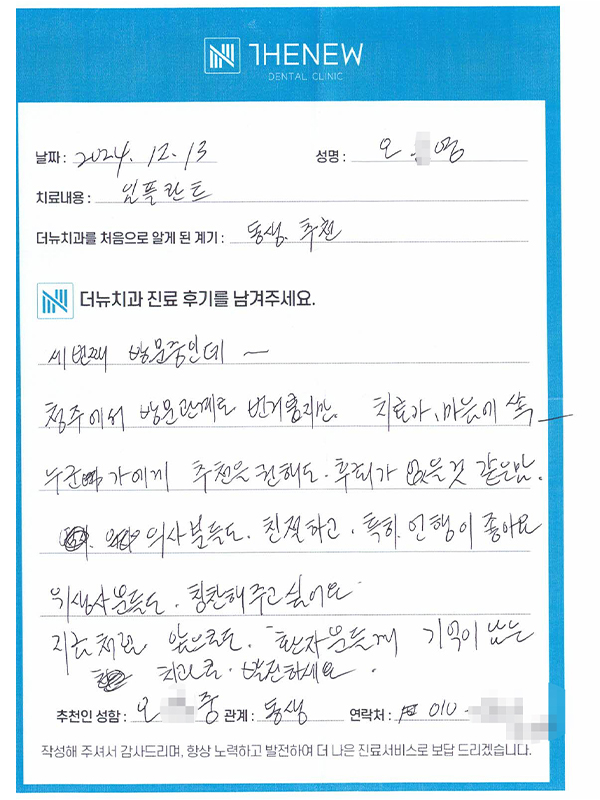 THENEW
DENTAL CLINIC
날짜 : 2024. 12. 13 성명 : 오 영
치료내용 : 임플란트
더뉴치과를 처음으로 알게 된 계기 : 동생. 추천
더뉴치과 진료 후기를 남겨주세요.
세번째 방문중인데 ~
청주에서 방문관계로 번거롭지만. 치료가, 마음에 쏙_
누군가에게 추천을 권해도. 후회가 없을것 같은맘.
의사분들도. 친절하고. 특히. 언행이 좋아요
위생사분들도. 칭찬해주고 싶어요
지금처럼 앞으로도. 환자분들께 기억이 남는
치과로. 발전하세요.
추천인 성함 : 오 중 관계 : 동생 연락처 : 010 -
작성해 주셔서 감사드리며, 항상 노력하고 발전하여 더 나은 진료서비스로 보답 드리겠습니다.